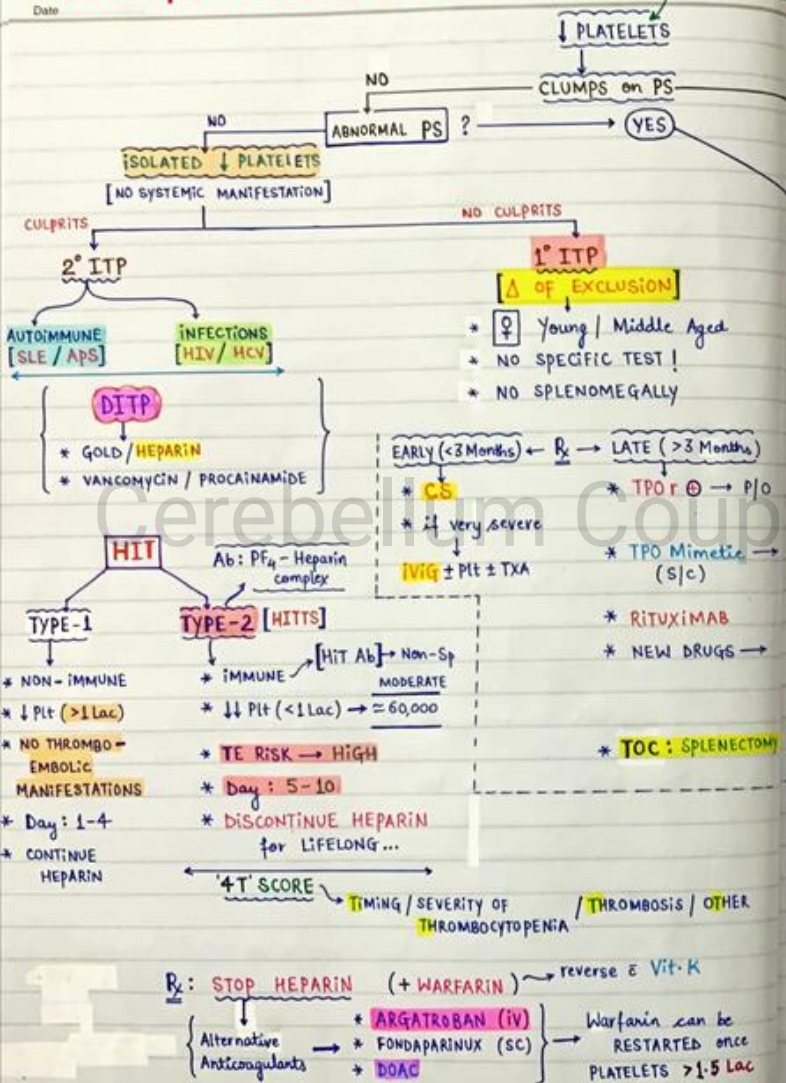 Date
↓ PLATELETS
CLUMPS on PS
NO
ABNORMAL PS ? → YES
NO
ISOLATED ↓ PLATELETS
[NO SYSTEMIC MANIFESTATION]
CULPRITS
NO CULPRITS
2° ITP
AUTOIMMUNE
[SLE / APS]
INFECTIONS
[HIV / HCV]
DITP
* GOLD / HEPARIN
* VANCOMYCIN / PROCAINAMIDE
1° ITP
[Δ OF EXCLUSION]
* ♀ Young / Middle Aged
* NO SPECIFIC TEST !
* NO SPLENOMEGALLY
EARLY (<3 Months) ← Rx → LATE (>3 Months)
* CS
* if very severe
IViG ± Plt ± TXA
* TPO r ⊕ → P/O
* TPO Mimetic →
(S/c)
* RITUXIMAB
* NEW DRUGS →
* TOC : SPLENECTOMY
Cerebellum Coup
HIT
Ab : PF4 - Heparin
complex
TYPE-1
* NON-IMMUNE
* ↓ Plt (>1 Lac)
* NO THROMBO-
EMBOLIC
MANIFESTATIONS
* Day : 1-4
* CONTINUE
HEPARIN
TYPE-2 [HITTS]
* IMMUNE → [HIT Ab] → Non-Sp
MODERATE
* ↓↓ Plt (<1 Lac) → ≃ 60,000
* TE RISK → HIGH
* Day : 5-10
* DISCONTINUE HEPARIN
for LIFELONG...
'4T' SCORE
TIMING / SEVERITY OF THROMBOCYTOPENIA / THROMBOSIS / OTHER
Rx : STOP HEPARIN (+ WARFARIN) → reverse c̄ Vit. K
Alternative
Anticoagulants →
* ARGATROBAN (iv)
* FONDAPARINUX (SC)
* DOAC
→ Warfarin can be
RESTARTED once
PLATELETS >1.5 Lac